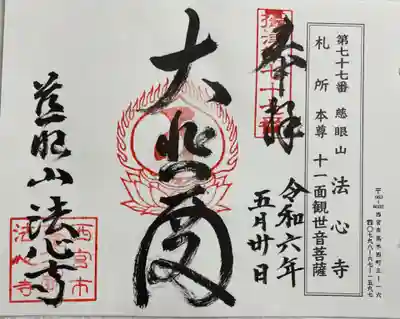 第七十七番 慈眼山 法心寺
札所 本尊 十一面観世音菩薩
奉拝
令和六年
五月卅日
大悲閣
慈眼山法心寺
西宮市
法心寺